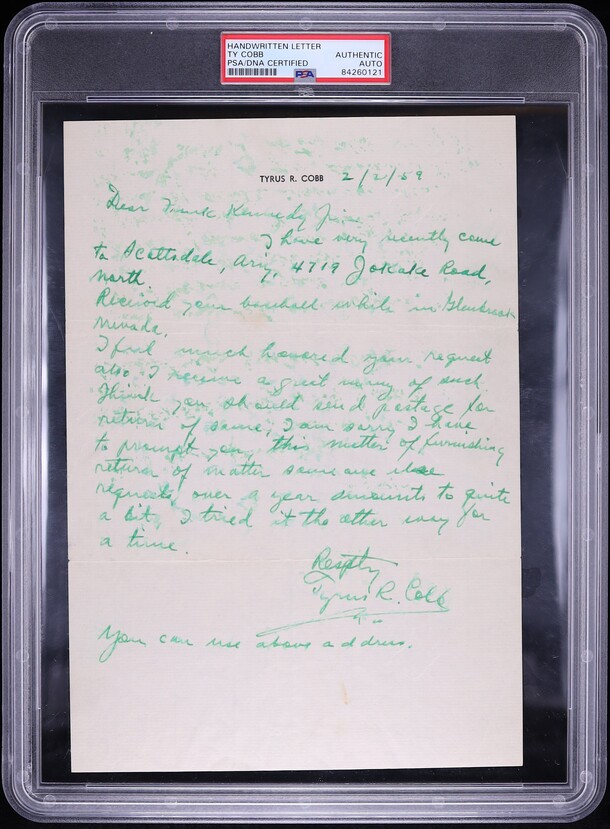 HANDWRITTEN LETTER
TY COBB
PSA/DNA CERTIFIED
AUTHENTIC
AUTO
84260121
PSA
TYRUS R. COBB 2/2/59
Dear Kennedy
I have very recently come
to Scottsdale, Ariz, 4719 Jokake Road,
North.
Received your baseball while in Glenbrook
Nevada.
I feel much honored your request
also I receive a great many of such.
I think you should send postage for
return of same, I am sorry I have
to prompt you, this matter of furnishing
return of matter some one else
requests, over a year amounts to quite
a bit, I tried it the other way for
a time.
Respty
Tyrus R. Cobb
You can use above address.